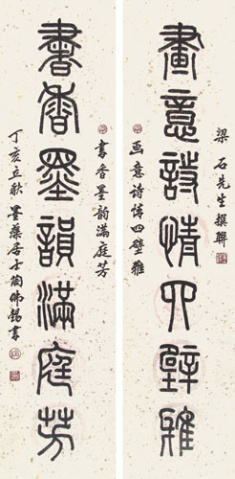 梁石先生撰聯
畫意詩情四壁雅
画意诗情四壁雅
书香墨韵满庭芳
書香墨韻滿庭芳
丁亥立秋墨居士陶佛錫書